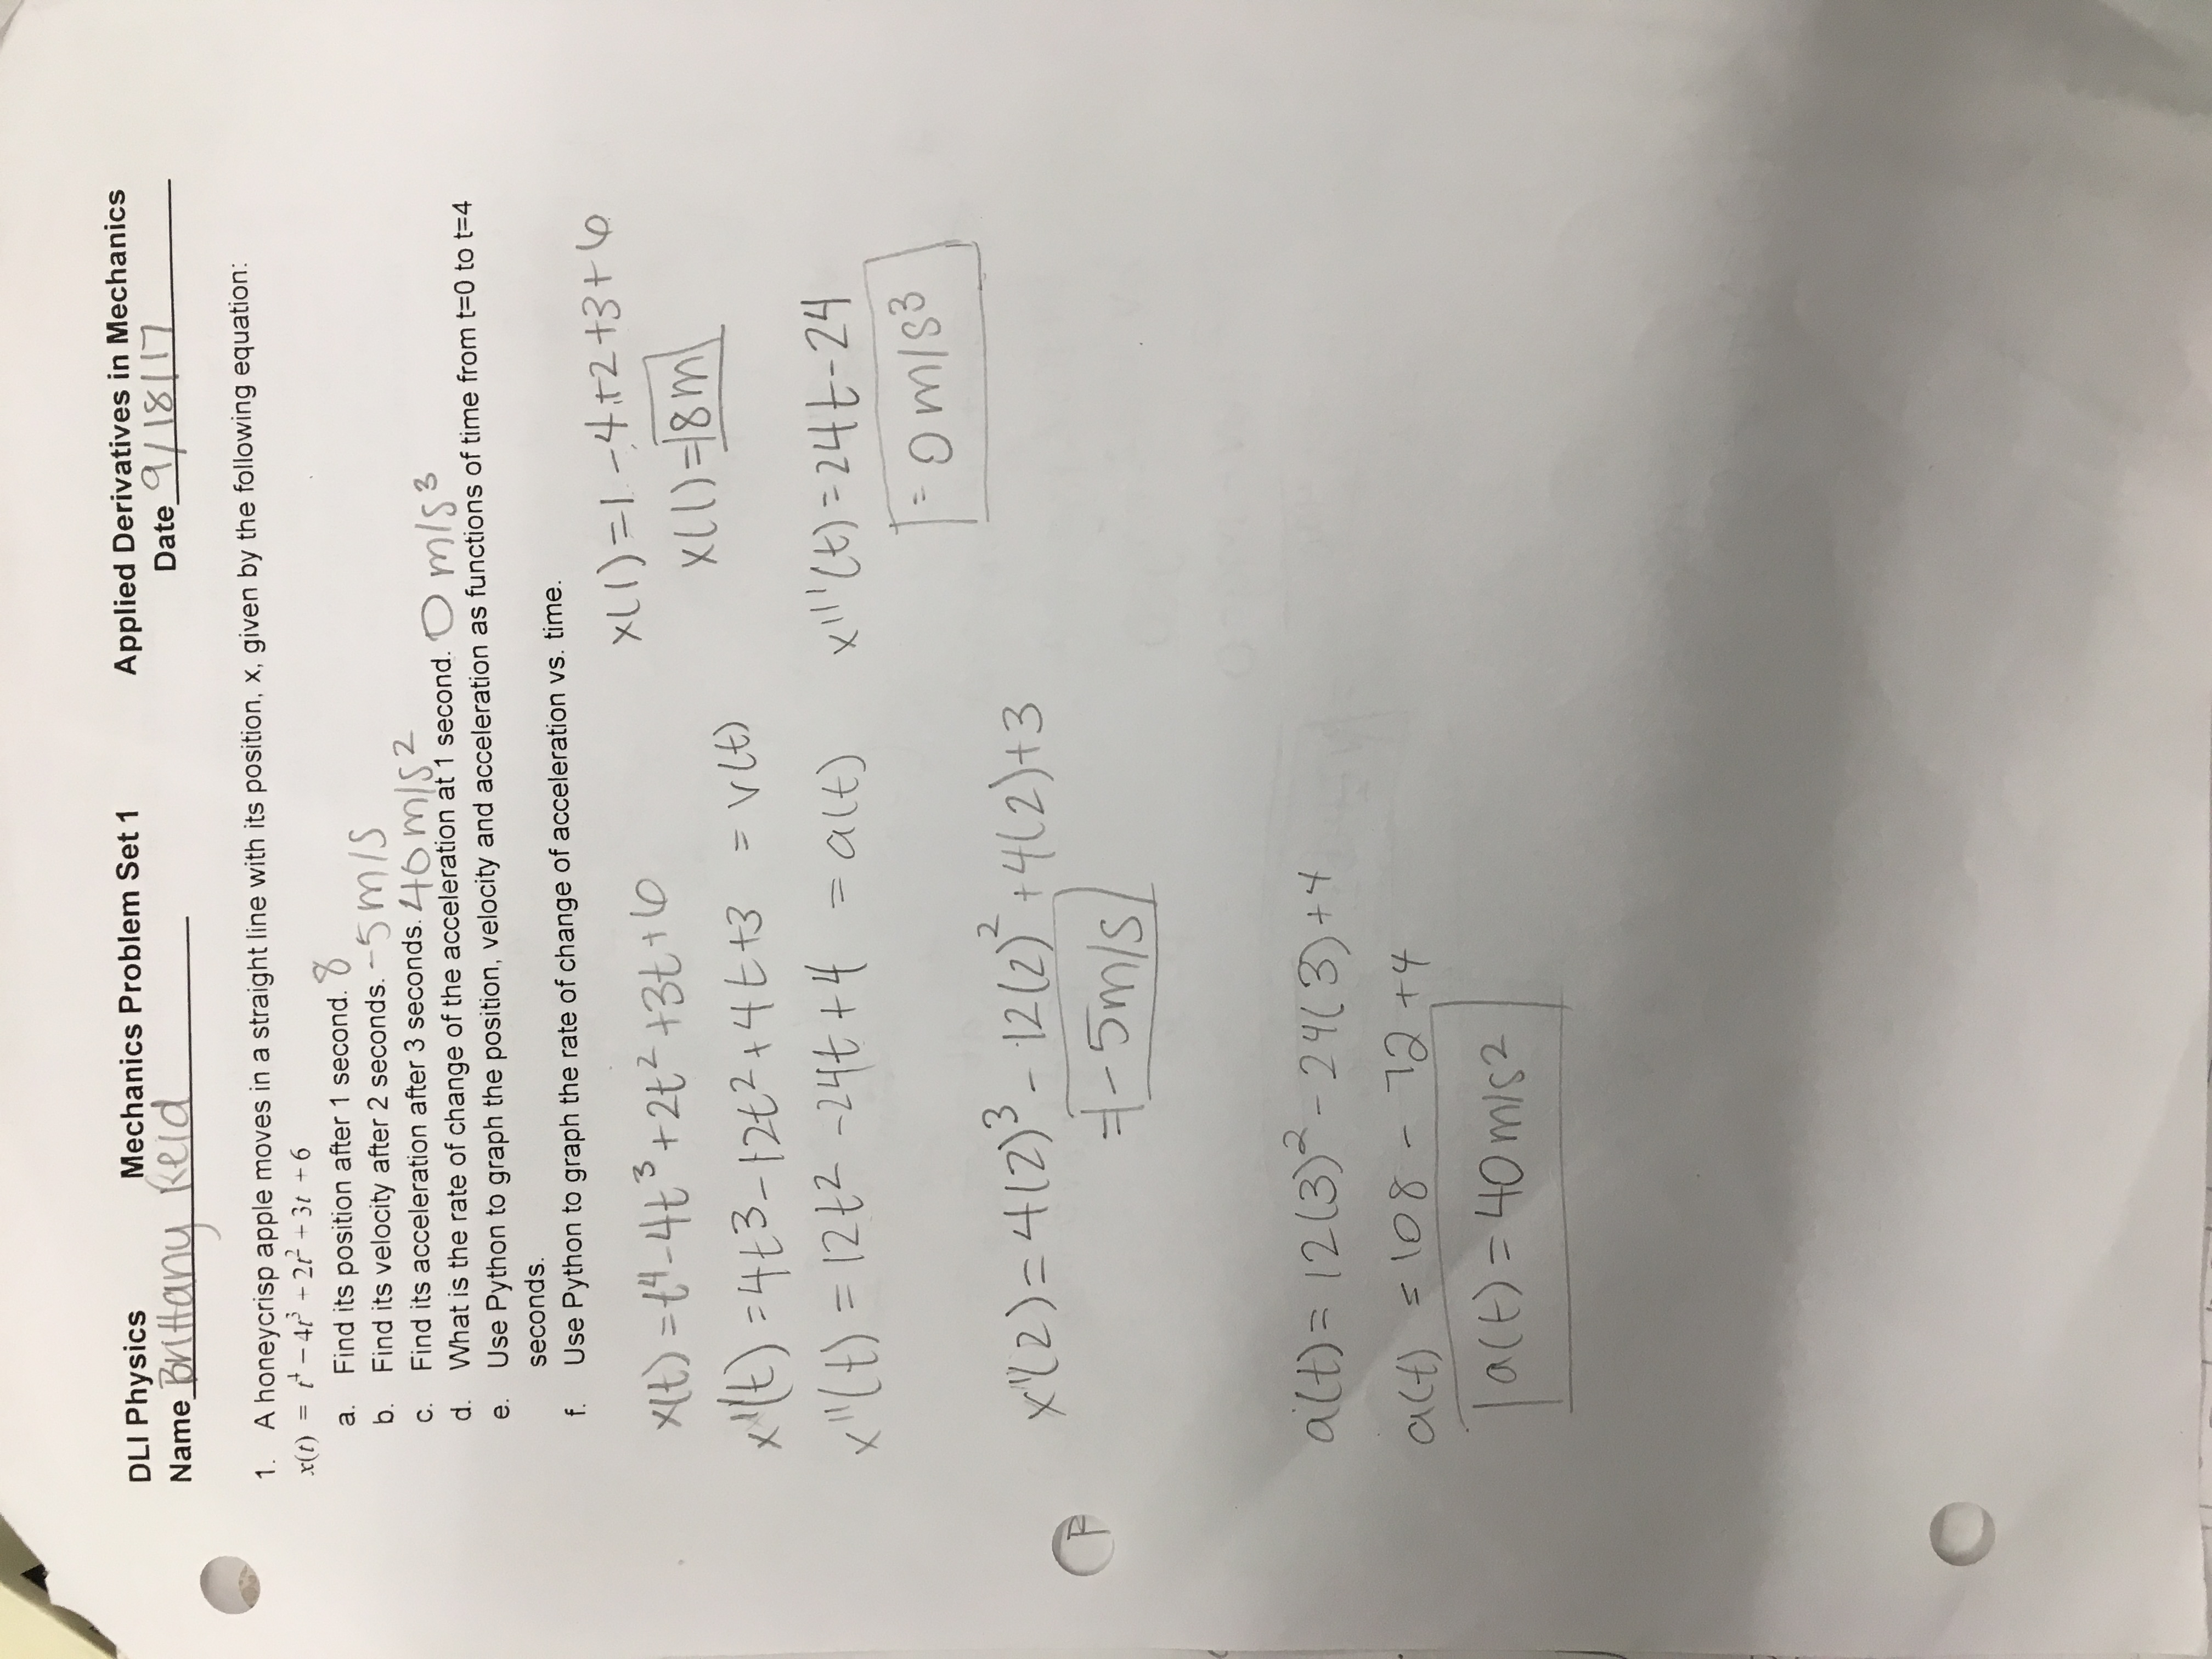 DLI Physics Mechanics Problem Set 1 Applied Derivatives in Mechanics
Name Brittany Reid Date 9/18/17
1. A honeycrisp apple moves in a straight line with its position, x, given by the following equation:
x(t) = t⁴ − 4t³ + 2t² + 3t + 6
a. Find its position after 1 second. 8
b. Find its velocity after 2 seconds. -5 m/s
c. Find its acceleration after 3 seconds. 40 m/s²
d. What is the rate of change of the acceleration at 1 second. 0 m/s³
e. Use Python to graph the position, velocity and acceleration as functions of time from t=0 to t=4
seconds.
f. Use Python to graph the rate of change of acceleration vs. time.
x(1)=1-4+2+3+6
x(t)=t⁴-4t³+2t²+3t+6
x(1)=8m
x'(t)=4t³-12t²+4t+3 = v(t)
x''(t)=12t²-24t+4 = a(t)
x'''(t)=24t-24
= 0 m/s³
x'(2)=4(2)³-12(2)²+4(2)+3
=-5m/s
a(t)=12(3)²-24(3)+4
a(t)=108-72+4
a(t)=40m/s²